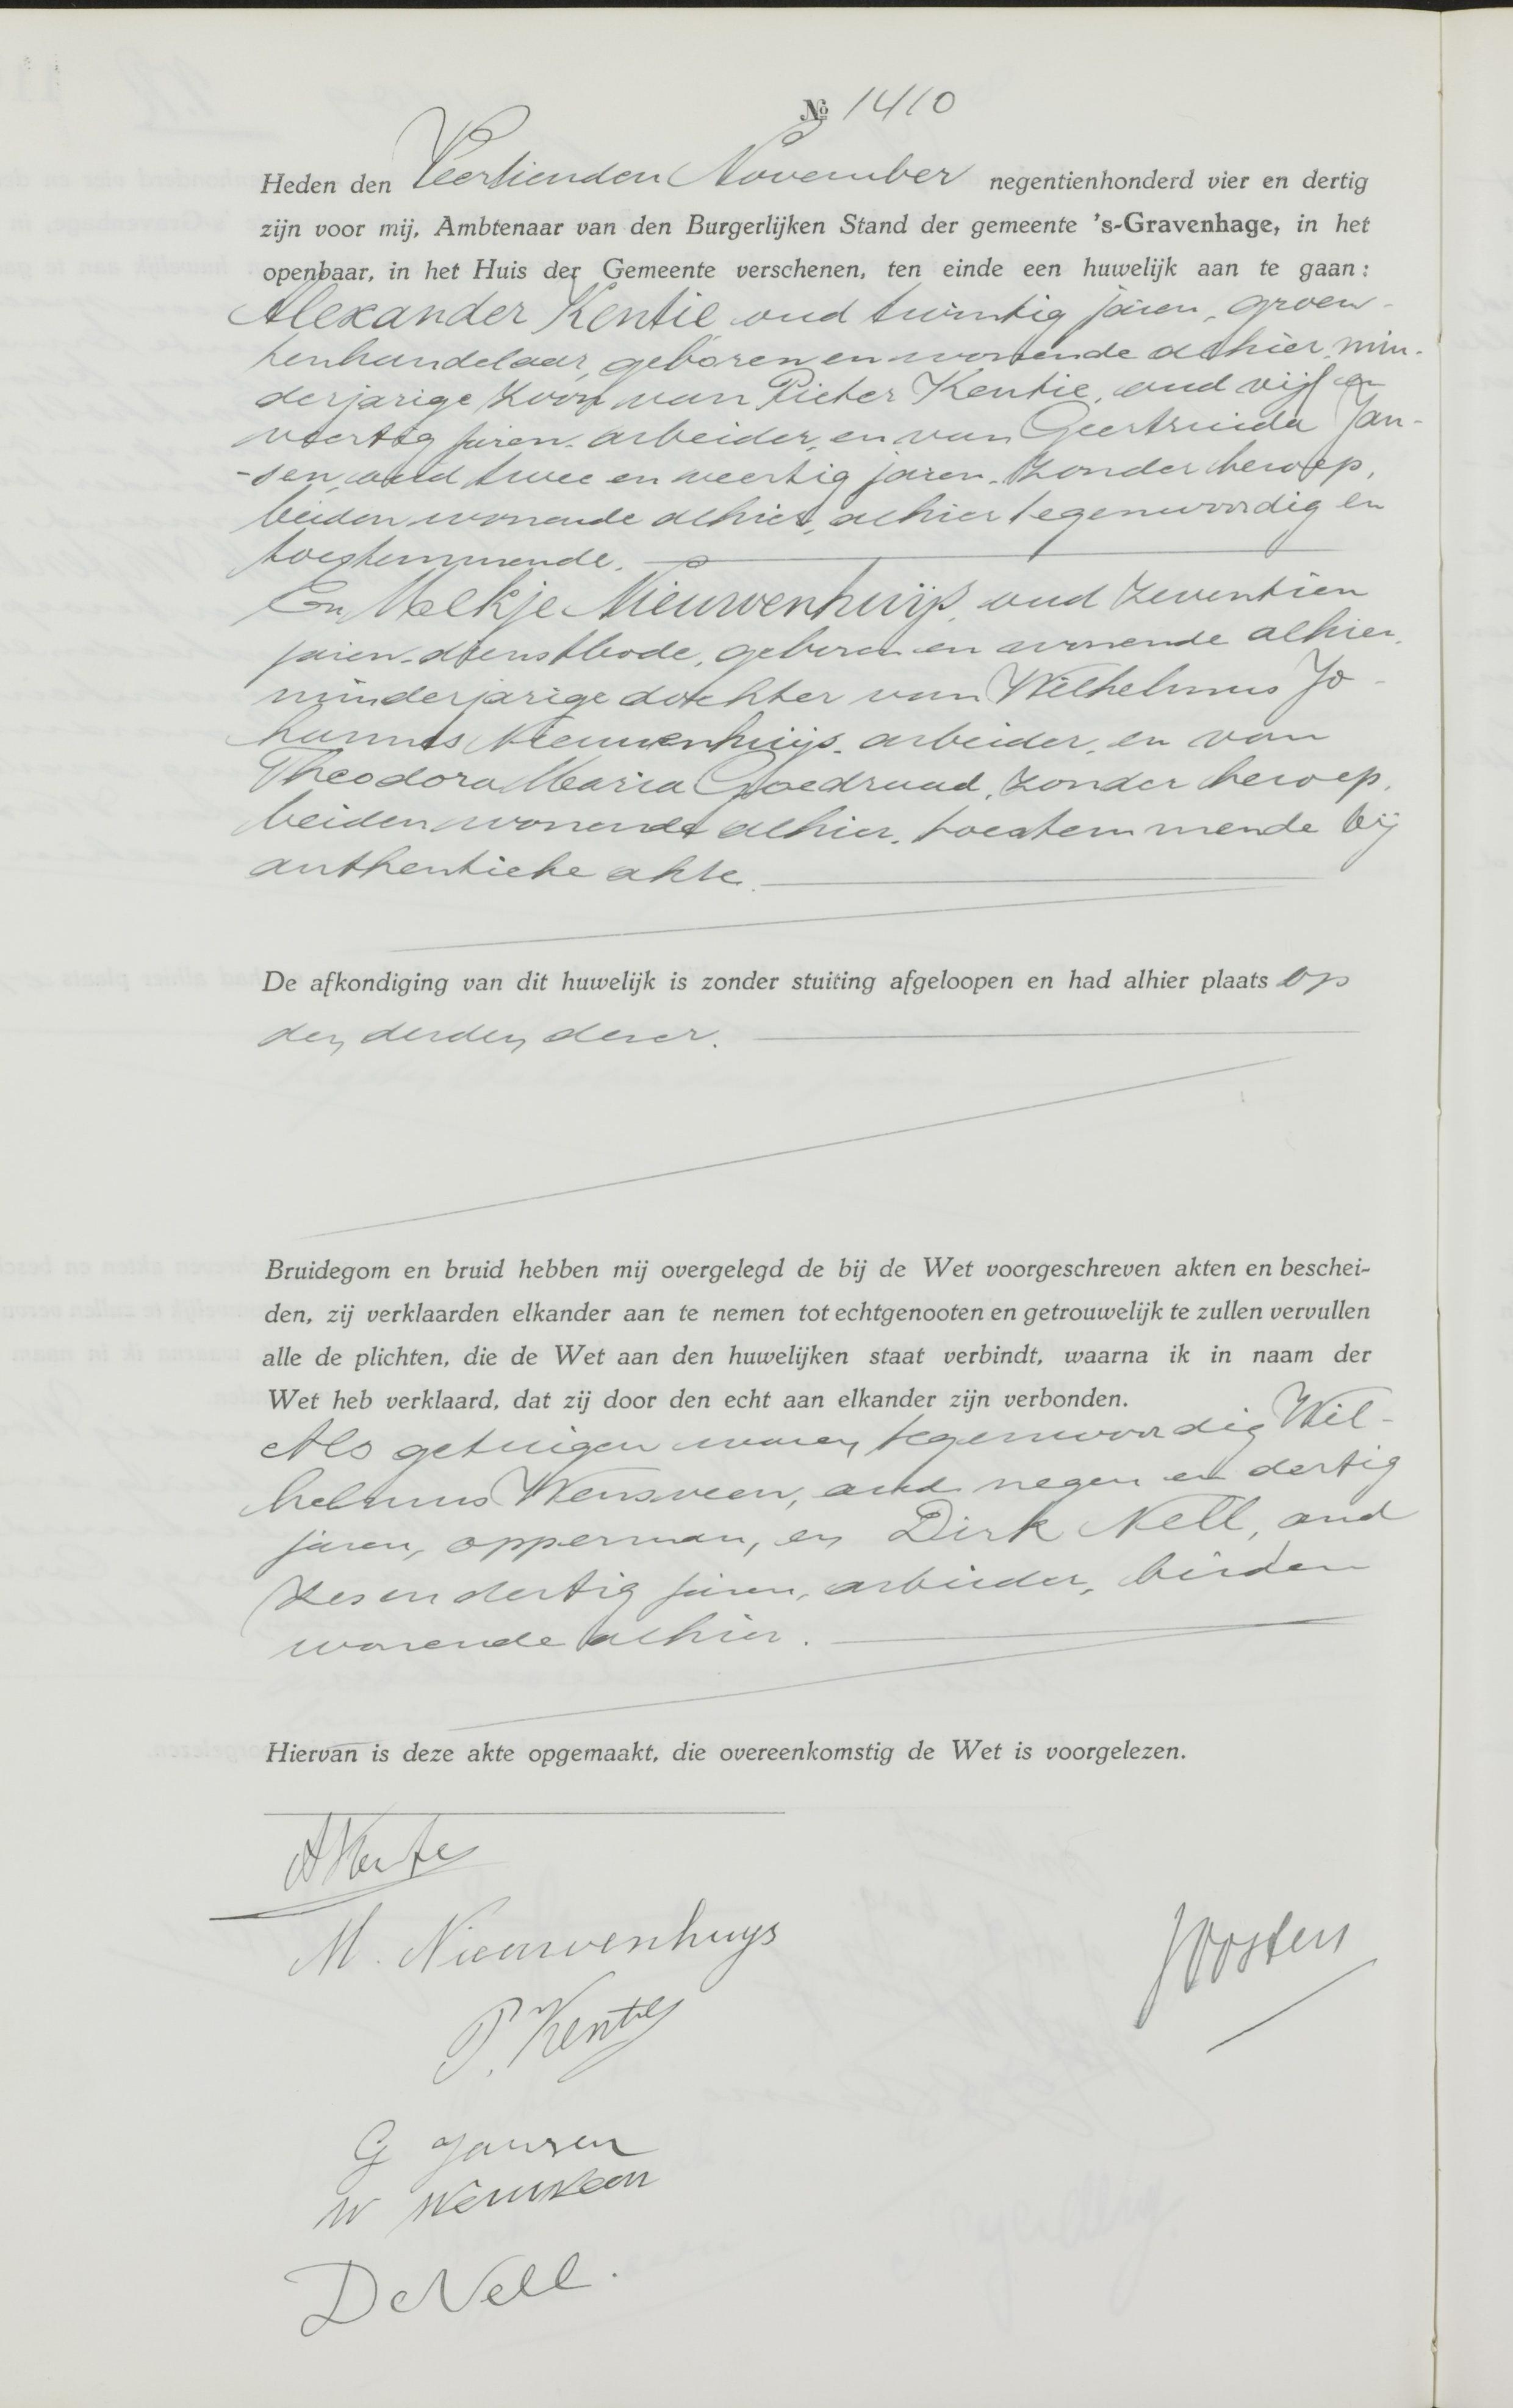 № 1410
Heden den Veertienden November negentienhonderd vier en dertig
zijn voor mij, Ambtenaar van den Burgerlijken Stand der gemeente 's-Gravenhage, in het
openbaar, in het Huis der Gemeente verschenen, ten einde een huwelijk aan te gaan:
Alexander Kentie, oud twintig jaren, groen-
tenhandelaar, geboren en wonende alhier, min-
derjarige zoon van Pieter Kentie, oud vijf en
veertig jaren, arbeider, en van Geertruida Jan-
-sen, oud twee en veertig jaren, zonder beroep,
beiden wonende alhier, alhier tegenwoordig en
toestemmende.
En Melkje Nieuwenhuijs, oud zeventien
jaren, dienstbode, geboren en wonende alhier,
minderjarige dochter van Wilhelmus Jo-
hannes Nieuwenhuijs, arbeider, en van
Theodora Maria Goedraad, zonder beroep,
beiden wonende alhier, toestemmende bij
authentieke akte.
De afkondiging van dit huwelijk is zonder stuiting afgeloopen en had alhier plaats op
den derden dezer.
Bruidegom en bruid hebben mij overgelegd de bij de Wet voorgeschreven akten en beschei-
den, zij verklaarden elkander aan te nemen tot echtgenooten en getrouwelijk te zullen vervullen
alle de plichten, die de Wet aan den huwelijken staat verbindt, waarna ik in naam der
Wet heb verklaard, dat zij door den echt aan elkander zijn verbonden.
Als getuigen waren tegenwoordig Wil-
helmus Wensveen, oud negen en dertig
jaren, opperman, en Dirk Nell, oud
zes en dertig jaren, arbeider, beiden
wonende alhier.
Hiervan is deze akte opgemaakt, die overeenkomstig de Wet is voorgelezen.
A Kentie
M. Nieuwenhuys
JOosten
P. Kentie
G Jansen
W Wensveen
D Nell.